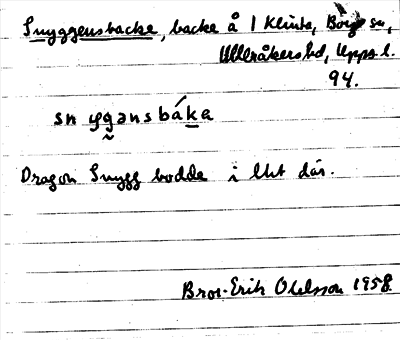 Snyggensbacke, backe å 1 Klinta, Börje sn,
Ulleråkers hd, Upps. l.
94.
snyg̰ansbáka
Dragon Snygg bodde i litet där.
Bror-Erik Ohlsson 1958.